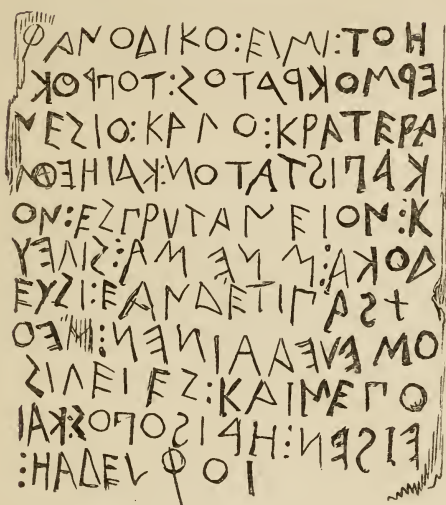 ΦΑΝΟΔΙΚΟ:ΕΙΜΙ:ΤΟΗ
ΕΡΜΟΚΡΑΤΟΣ:ΤΟΠΡΟΚ
ΝΕΣΙΟ:ΚΑΓΟ:ΚΡΑΤΕΡΑ
ΚΑΠΙΣΤΑΤΟΝ:ΚΑΙΗΕΘΜ
ΟΝ:ΕΣΠΡΥΤΑΝΕΙΟΝ:Κ
ΔΟΚΑ:ΜΝΕΜΑ:ΣΙΓΕΥ
ΕΥΣΙ:ΕΑΝΔΕΤΙΠΑΣ+
ΟΜΕΛΕΔΑΙΝΕΝ:ΜΕΟ
ΣΙΓΕΙΕΣ:ΚΑΙΜΕΠΟ
ΕΙΣΕΝ:ΗΑΙΣΟΠΟΣ:ΚΑΙ
:ΗΑΔΕΛΦΟΙ